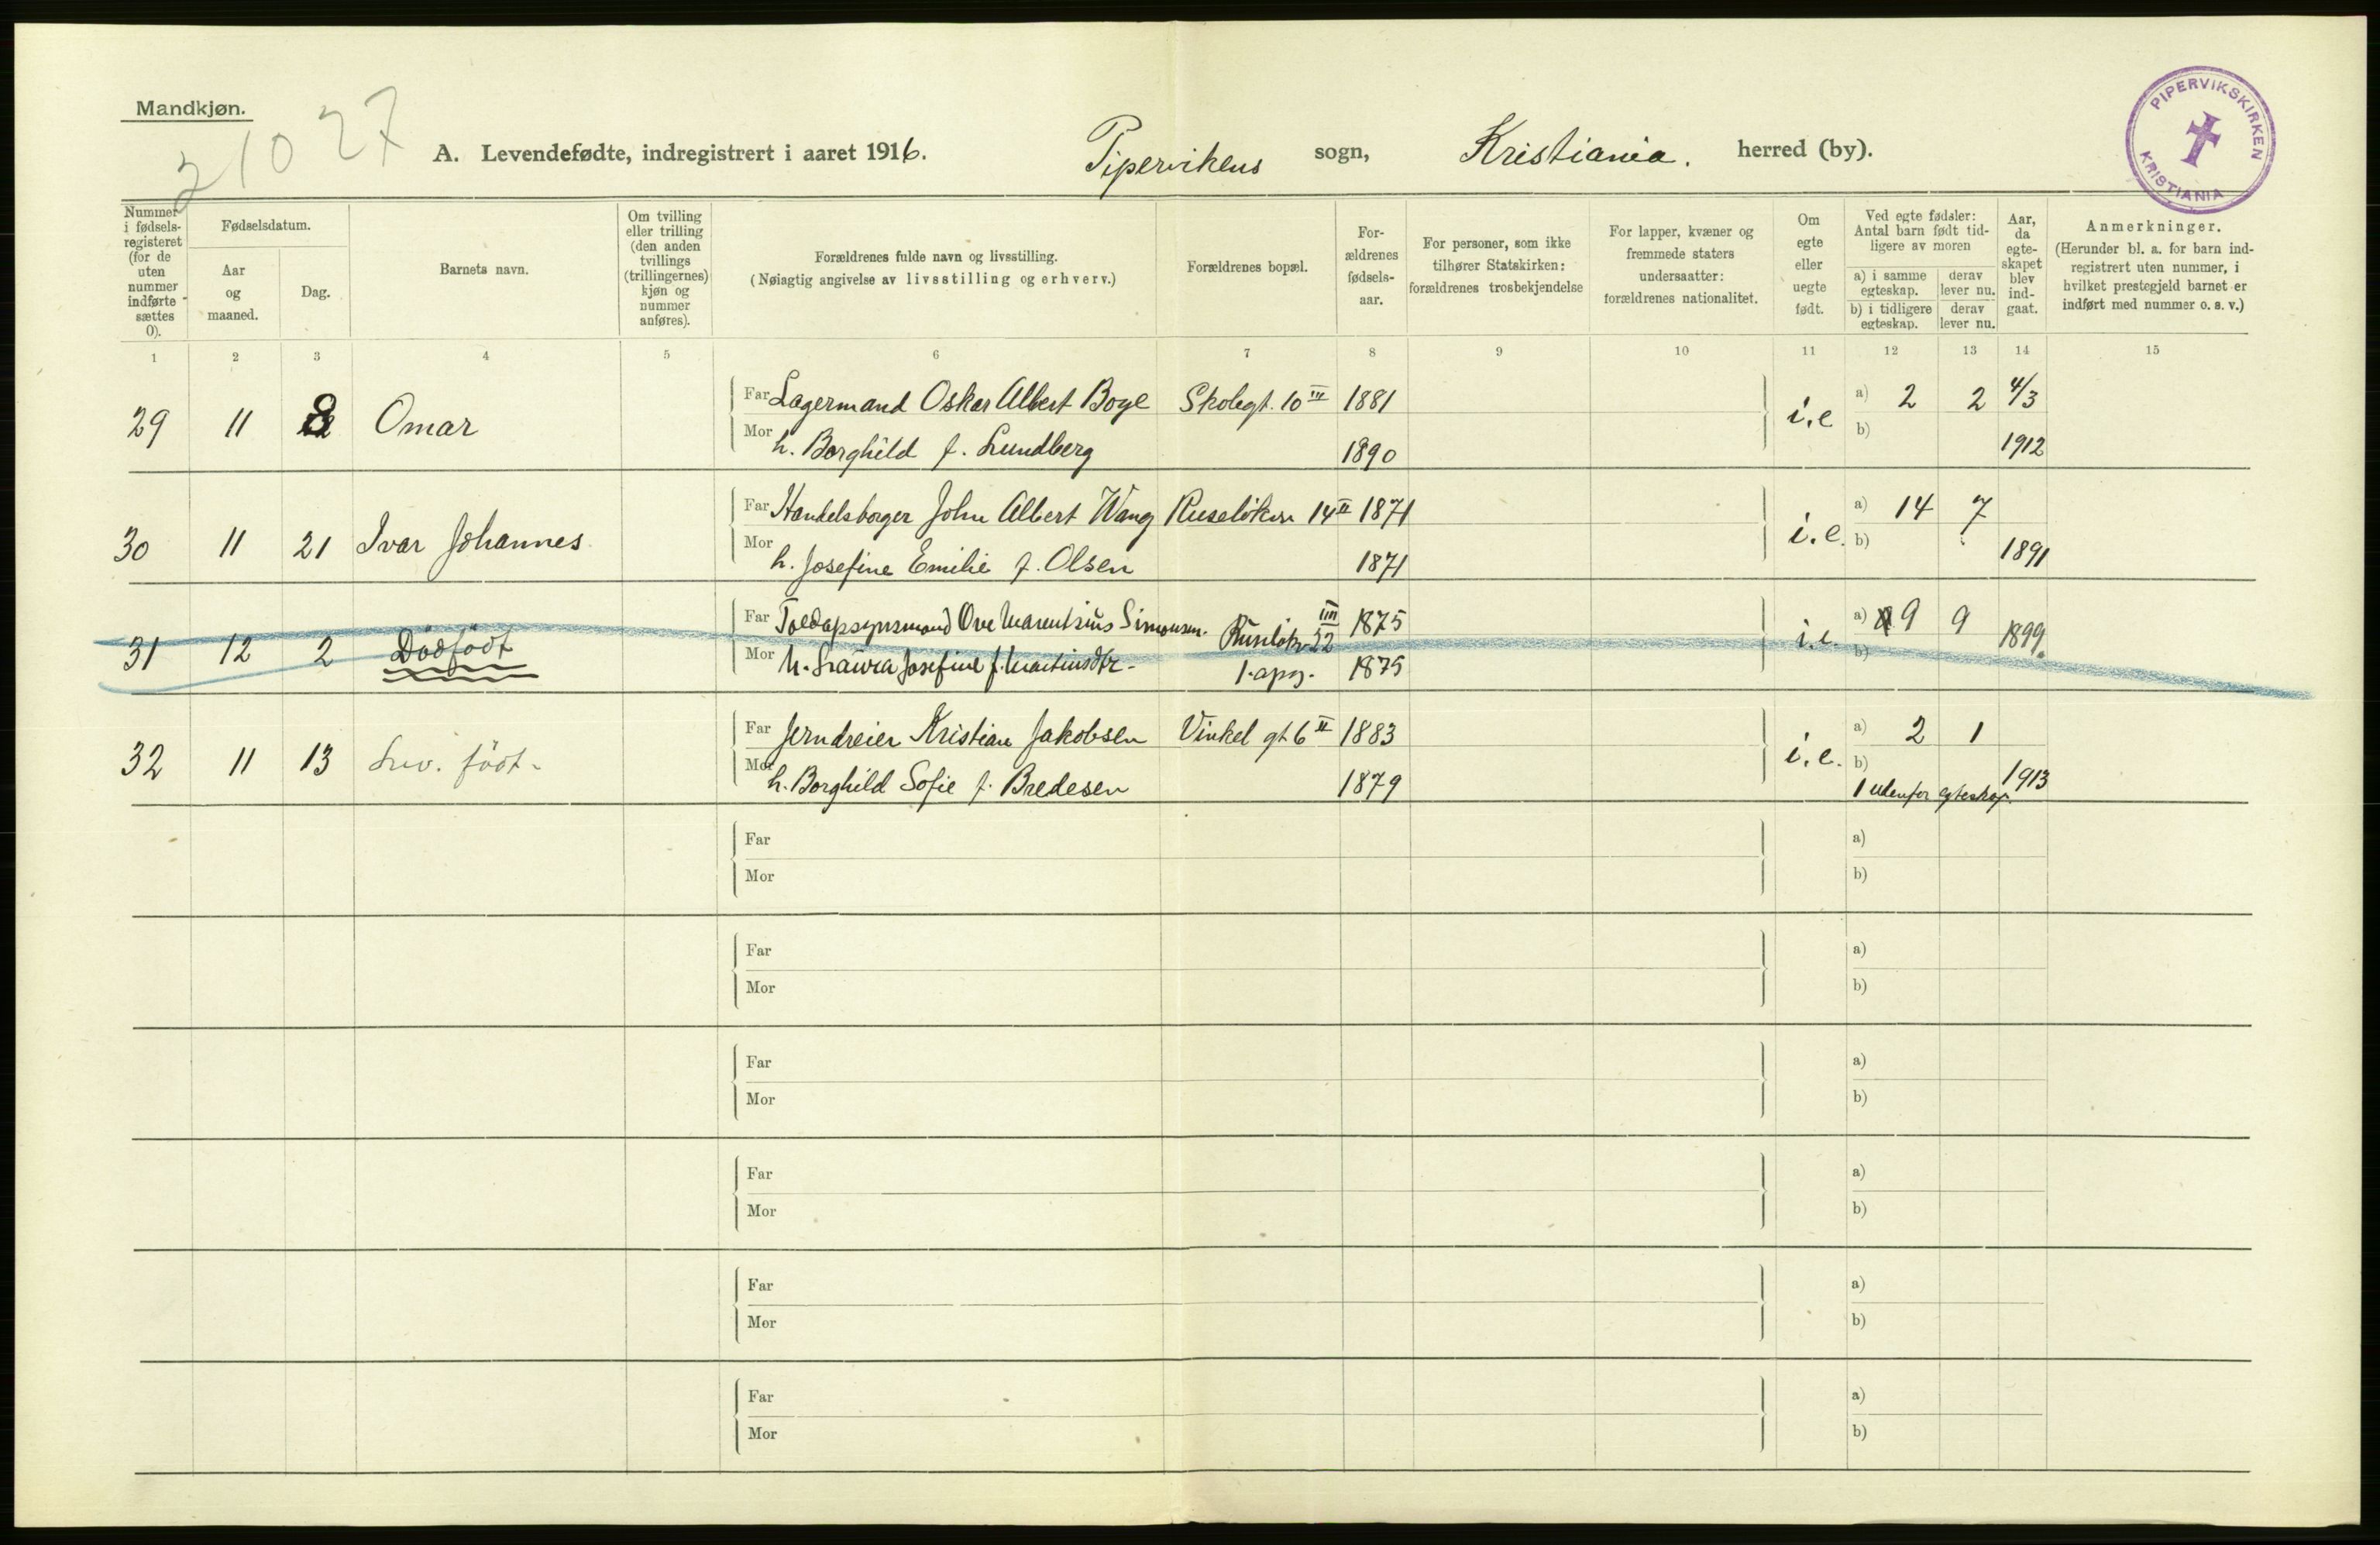 Mandkjøn.
21027
A. Levendefødte, indregistrert i aaret 1916. Pipervikens sogn, Kristiania. herred (by).
PIPERVIKSKIRKEN KRISTIANIA
Nummer i fødsels-registeret (for de uten nummer indførte sættes 0).
Fødselsdatum.
Aar og maaned.
Dag.
Barnets navn.
Om tvilling eller trilling (den anden tvillings (trillingernes) kjøn og nummer anføres).
Forældrenes fulde navn og livsstilling.
(Nøiagtig angivelse av livsstilling og erhverv.)
Forældrenes bopæl.
For-ældrenes fødsels-aar.
For personer, som ikke tilhører Statskirken: forældrenes trosbekjendelse
For lapper, kvæner og fremmede staters undersaatter: forældrenes nationalitet.
Om egte eller uegte født.
Ved egte fødsler: Antal barn født tid-ligere av moren
a) i samme egteskap.
derav lever nu.
b) i tidligere egteskap.
derav lever nu.
Aar, da egte-skapet blev ind-gaat.
Anmerkninger.
(Herunder bl. a. for barn ind-registrert uten nummer, i hvilket prestegjeld barnet er indført med nummer o. s. v.)
1 2 3 4 5 6 7 8 9 10 11 12 13 14 15
Far Lagermand Oskar Albert Boye Skolegt. 10 III 1881 a) 2 2 4/3
29 11 8 Omar i.e
Mor h. Borghild f. Lundberg 1890 b) 1912
Far Handelsborger John Albert Wang Ruseløkvn 14 II 1871 a) 14 7
30 11 21 Ivar Johannes i.e.
Mor h. Josefine Emilie f. Olsen 1871 b) 1891
Far Toldopsynsmand Ove Marentzius Simonsen. Ruseløkv 22 IIII 1875 a) 9 9 1899.
31 12 2 Dödfödt i.e.
Mor h. Laura Josefine f. Martinsdtr. 1875 b)
Far Jerndreier Kristian Jakobsen Vinkel gt 6 II 1883 a) 2 1
32 11 13 Lev. födt- i.e.
Mor h. Borghild Sofie f. Bredesen 1879 b) 1 udenfor egteskap. 1913
Far a)
Mor b)
Far a)
Mor b)
Far a)
Mor b)
Far a)
Mor b)
Far a)
Mor b)
Far a)
Mor b)